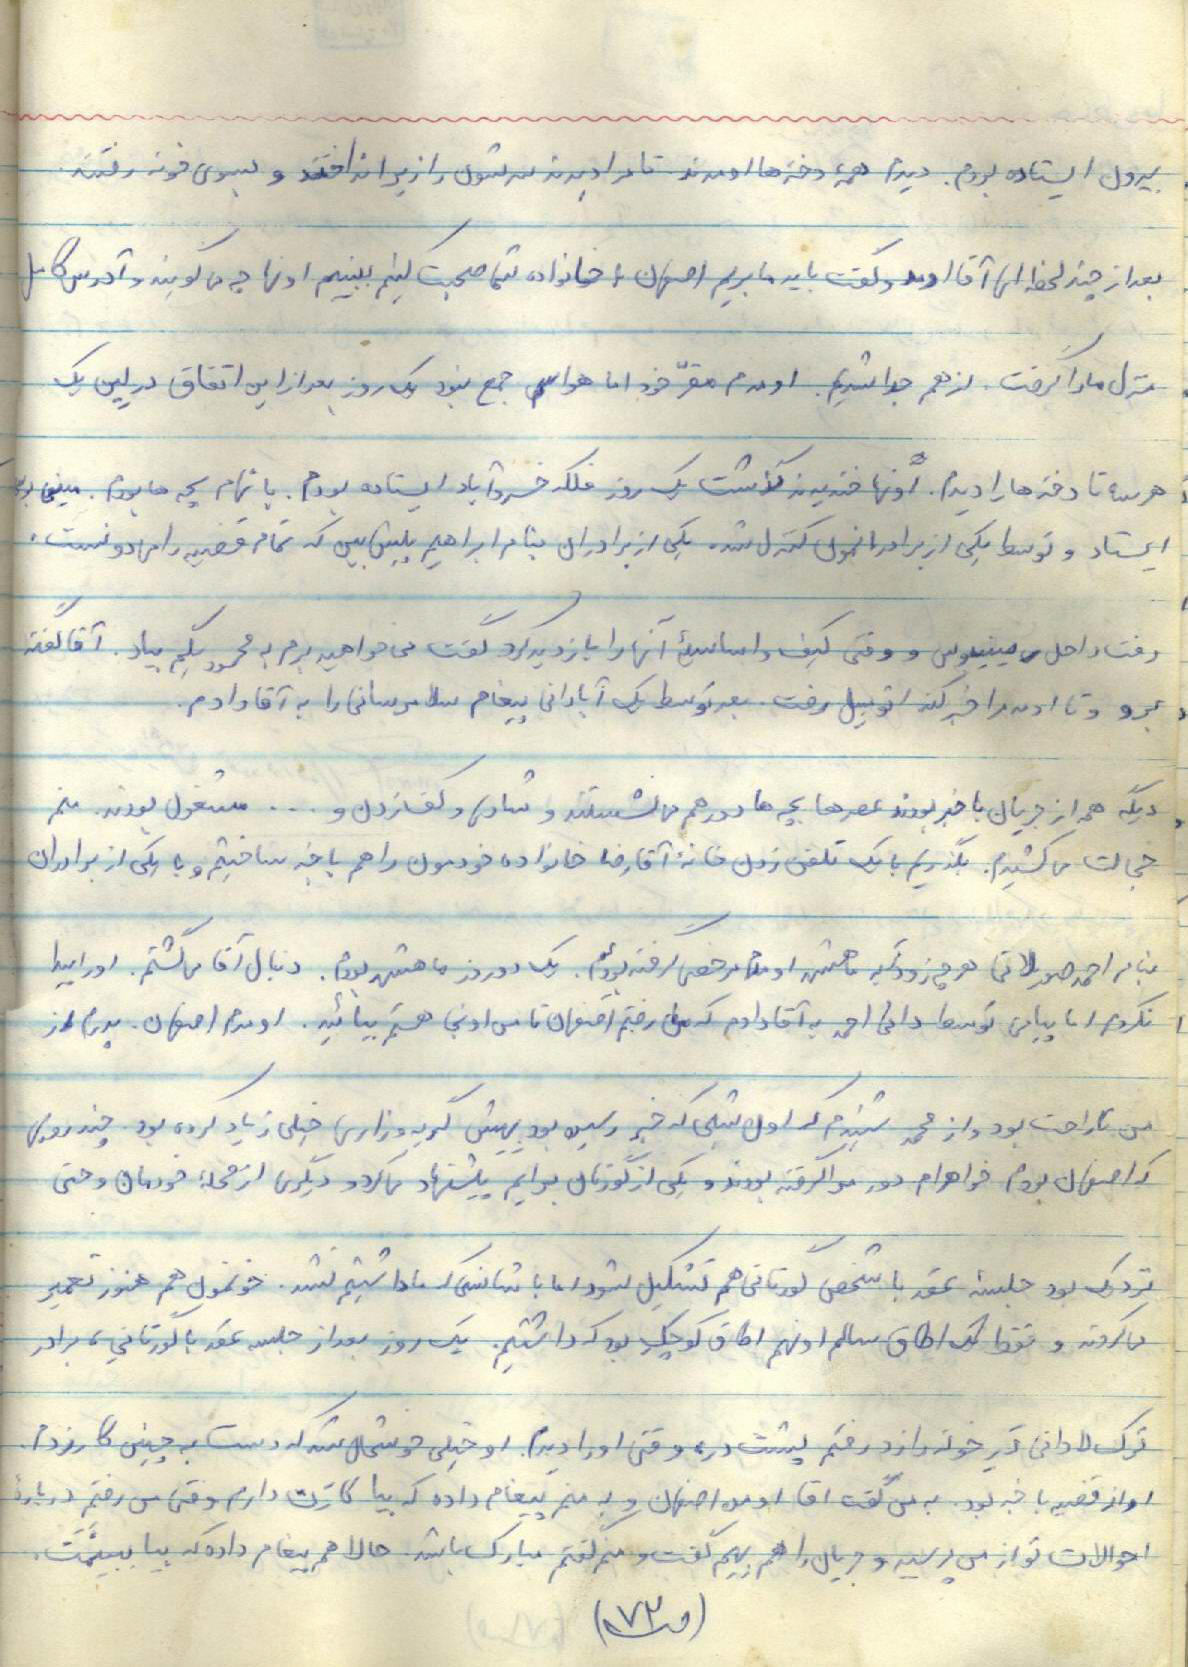 بیرون ایستاده بودم. دیدم همهٔ دخترها اومدند تا مرا دیدند سرشون را زیر انداختند و بسوی خونه رفتند.
بعد از چند لحظه ای آقا اومد و گفت باید ما بریم اصفهان با خانواده شما صحبت کنیم ببینیم اونها چه می گویند و آدرس کامل
منزل ما را گرفت. از هم جدا شدیم. اومدم مقرّ خود اما هواسم جمع نبود یک روز بعد از این اتفاق در لین یک
هر سه تا دخترها را دیدم. اونها خندیدند گذشت یک روز فلکه خسروآباد ایستاده بودم. با تمام بچه ها بودم. مینی بوس
ایستاد و توسط یکی از برادرانمون کنترل شد. یکی از برادران بنام ابراهیم پلیش بین که تمام قضیه را می دونست،
رفت داخل مینیبوس و وقتی کیف و اساسیهٔ آنها را بازدید کرد گفت می خواهید برم به محمود بگم بیاد. آقا گفته
برو و تا اومد مرا خبر کند اتوبیل رفت. بعد توسط یک آبادانی پیغام سلام رسانی را به آقا دادم.
دیگه همه از جریان با خبر بودند عصرها بچه ها دور هم می نشستند و شادی و کف زدن و ... مشغول بودند. منم
خجالت می کشیدم. بگذریم با یک تلفن زدن خانهٔ آقا رضا خانواده خودمون را هم باخبر ساختیم و با یکی از برادران
بنام احمد صورلاتی هر چه زودتر به ماهشهر اومدم مرخصی گرفته بودم. یک دو روز ماهشهر بودم. دنبال آقا می گشتم. او را پیدا
نکردم اما پیامی توسط دائی احمد به آقا دادم که من رفتم اصفهان تا من اونجا هستم بیائید. اومدم اصفهان. پدرم از
من ناراحت بود و از محمد شنیدم که اول شبی که خبر رسیده بود بهش گریه و زاری خیلی زیاد کرده بود. چند روزی
که اصفهان بودم خواهرام دور مرا گرفته بودند و یکی از گورتان برایم پیشنهاد می کرد و دیگری از محلهٔ خودمان و حتی
نزدیک بود جلسهٔ عقد با شخص گورتانی هم تشکیل شود اما با شانسی که ما داشتیم نشد. خونمون هم هنوز تعمیر
می کردند و فقط یک اطاق سالم اونهم اطاق کوچک بود که داشتیم. یک روز بعد از جلسه عقد با گورتانی، برادر
ترک لادانی درِ خونه را زد رفتم پشت در، وقتی او را دیدم. او خیلی خوشحال شد که دست به چنین کار زدم.
او از قضیه با خبر بود. به من گفت آقا اومده اصفهان و به منم پیغام داده که بیا کارت دارم وقتی من رفتم دربارهٔ
احوالات تو از من پرسید و جریان را هم بهم گفت و منم گفتم مبارک باشد. حالا هم پیغام داده که بیا ببینمت.
(ص ۷۳)